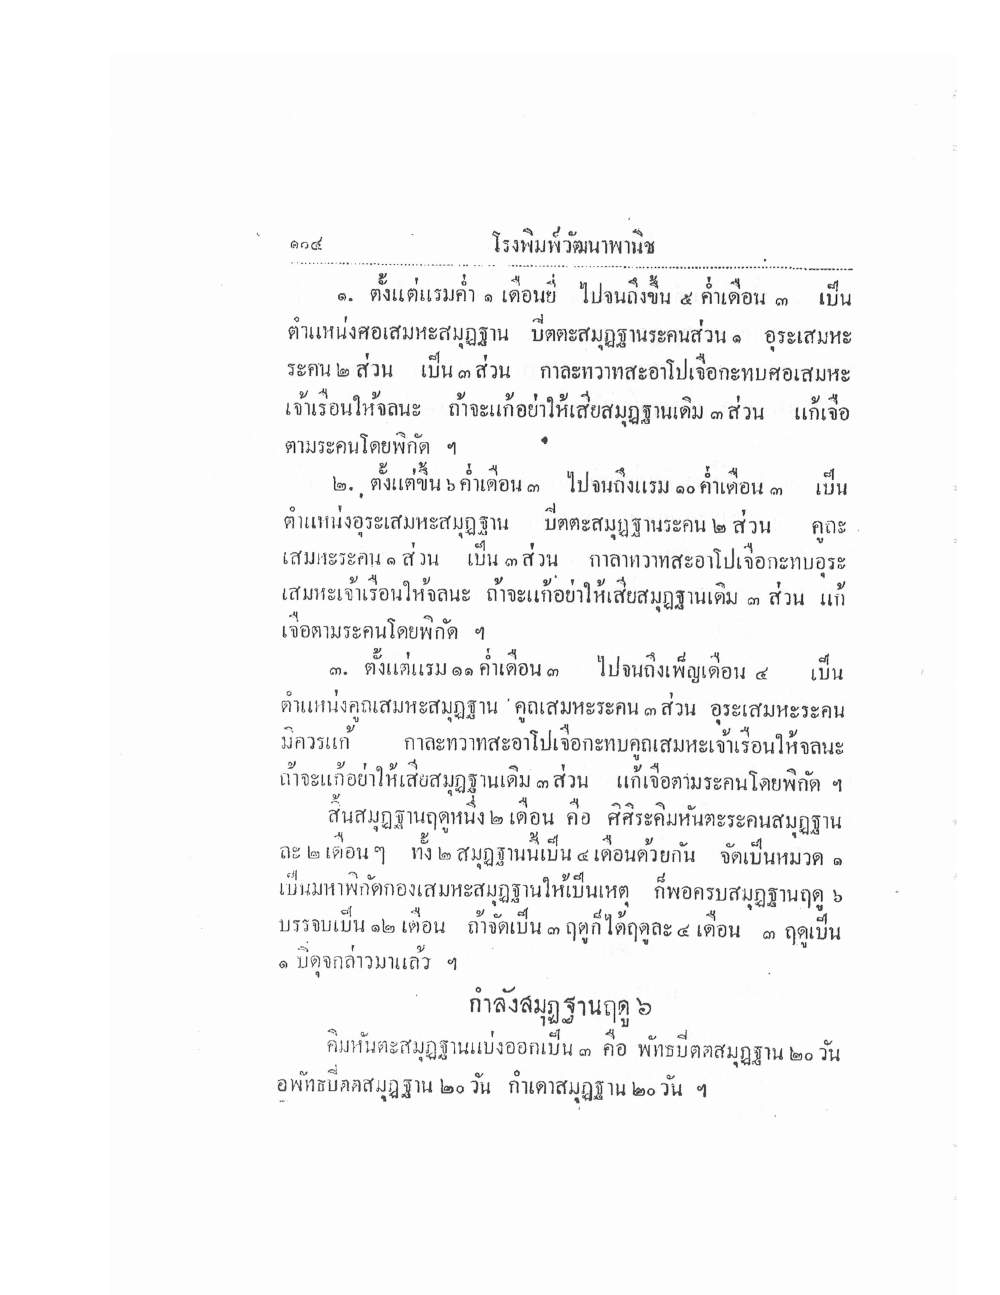 ๑๐๔ โรงพิมพ์วัฒนาพานิช
๑. ตั้งแต่แรมค่ำ ๑ เดือนยี่ ไปจนถึงขึ้น ๕ ค่ำเดือน ๓ เป็น
ตำแหน่งศอเสมหะสมุฏฐาน ปิตตะสมุฏฐานระคนส่วน ๑ อุระเสมหะ
ระคน ๒ ส่วน เป็น ๓ ส่วน กาละทวาทสะอาโปเจือกะทบศอเสมหะ
เจ้าเรือนให้จลนะ ถ้าจะแก้อย่าให้เสียสมุฏฐานเดิม ๓ ส่วน แก้เจือ
ตามระคนโดยพิกัด ฯ
๒. ตั้งแต่ขึ้น ๖ ค่ำเดือน ๓ ไปจนถึงแรม ๑๐ ค่ำเดือน ๓ เป็น
ตำแหน่งอุระเสมหะสมุฏฐาน ปิตตะสมุฏฐานระคน ๒ ส่วน คูถะ
เสมหะระคน ๑ ส่วน เป็น ๓ ส่วน กาลาทวาทสะอาโปเจือกะทบอุระ
เสมหะเจ้าเรือนให้จลนะ ถ้าจะแก้อย่าให้เสียสมุฏฐานเดิม ๓ ส่วน แก้
เจือตามระคนโดยพิกัด ฯ
๓. ตั้งแต่แรม ๑๑ ค่ำเดือน ๓ ไปจนถึงเพ็ญเดือน ๔ เป็น
ตำแหน่งคูถเสมหะสมุฏฐาน คูถเสมหะระคน ๓ ส่วน อุระเสมหะระคน
มิควรแก้ กาละทวาทสะอาโปเจือกะทบคูถเสมหะเจ้าเรือนให้จลนะ
ถ้าจะแก้อย่าให้เสียสมุฏฐานเดิม ๓ ส่วน แก้เจือตามระคนโดยพิกัด ฯ
สิ้นสมุฏฐานฤดูหนึ่ง ๒ เดือน คือ ศิศิระคิมหันตะระคนสมุฏฐาน
ละ ๒ เดือน ๆ ทั้ง ๒ สมุฏฐานนี้เป็น ๔ เดือนด้วยกัน จัดเป็นหมวด ๑
เป็นมหาพิกัดกองเสมหะสมุฏฐานให้เป็นเหตุ ก็พอครบสมุฏฐานฤดู ๖
บรรจบเป็น ๑๒ เดือน ถ้าจัดเป็น ๓ ฤดูก็ได้ฤดูละ ๔ เดือน ๓ ฤดูเป็น
๑ ปีดุจกล่าวมาแล้ว ฯ
กำลังสมุฏฐานฤดู ๖
คิมหันตะสมุฏฐานแบ่งออกเป็น ๓ คือ พัทธปิตตสมุฏฐาน ๒๐ วัน
อพัทธปิตตสมุฏฐาน ๒๐ วัน กำเดาสมุฏฐาน ๒๐ วัน ฯ